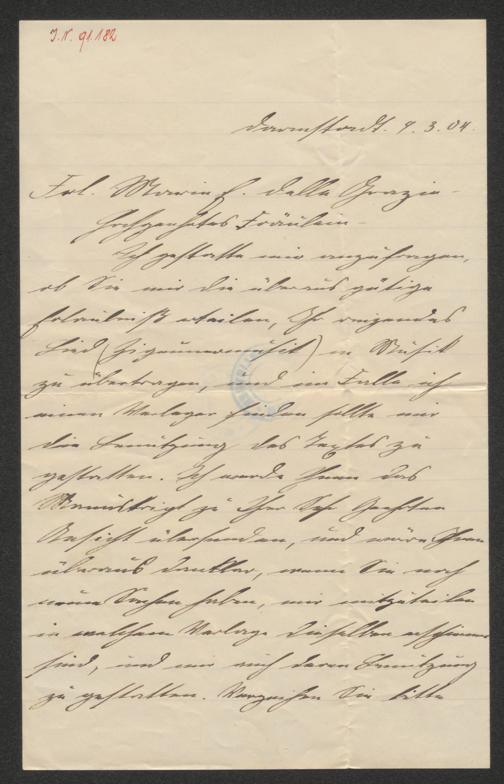 J.N. 91.182
Darmstadt. 9.3.04.
Frl. Marie E. delle Grazie –
Hochgeehrtes Fräulein –
Ich gestatte mir anzufragen,
ob Sie mir die überaus gütige
Erlaubniß erteilen, Ihr reizendes
Lied (Zigeunermusik) in Musik
zu übertragen, und im Falle ich
einen Verleger finden sollte mir
die Benützung des Textes zu
gestatten. Ich werde Ihnen das
Manuskript zu Ihrer geehrten
Ansicht übersenden, und wäre Ihnen
überaus dankbar, wenn Sie noch
neue Sachen haben, mir mitzuteilen
in welchem Verlage dieselben erschienen
sind, und mir auch deren Benützung
zu gestatten. Verzeihen Sie bitte